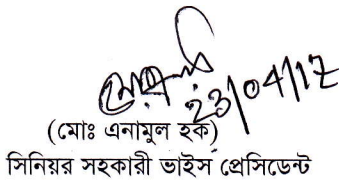 23/04/17
(মোঃ এনামুল হক)
সিনিয়র সহকারী ভাইস প্রেসিডেন্ট